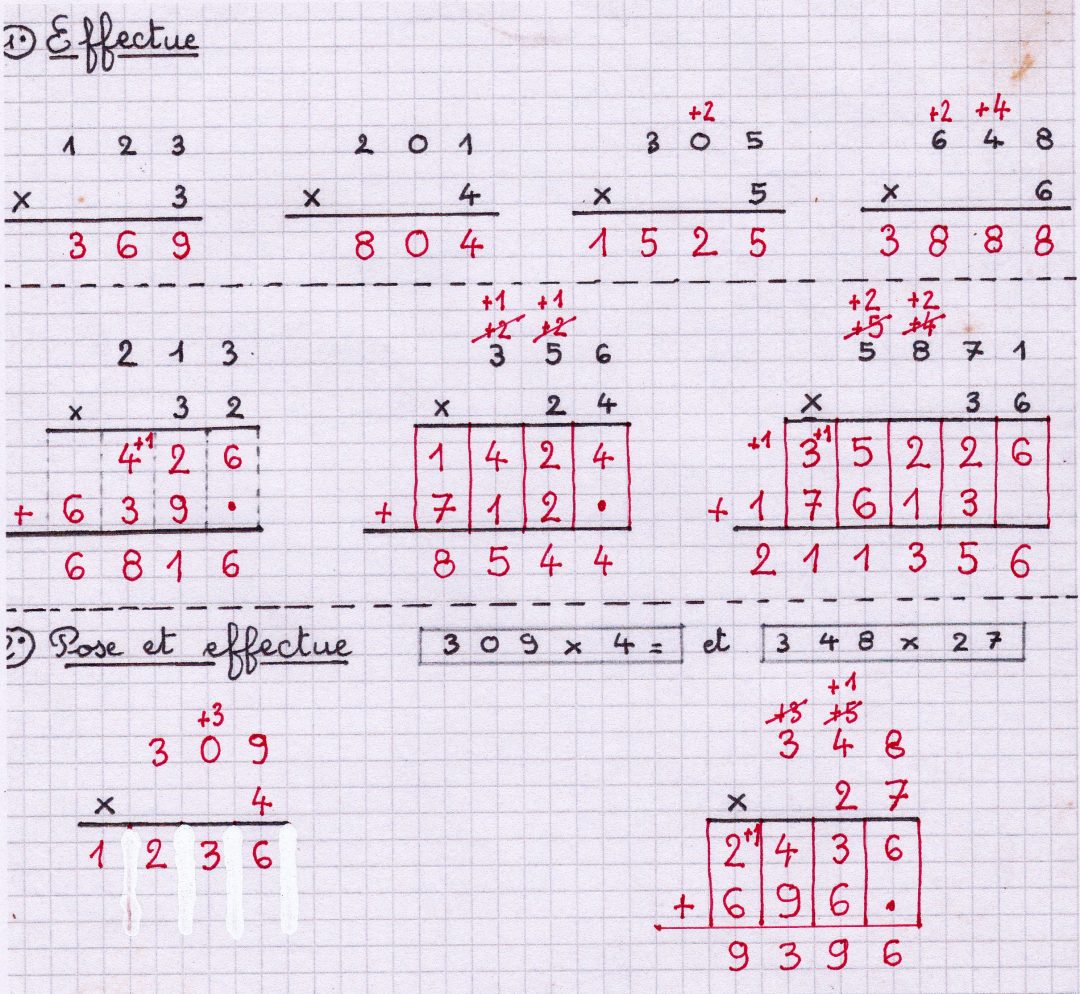 1.) Effectue
+2 +2 +4
1 2 3 2 0 1 3 0 5 6 4 8
x 3 x 4 x 5 x 6
3 6 9 8 0 4 1 5 2 5 3 8 8 8
+1 +1 +2 +2
+2 +2 +5 +4
2 1 3 3 5 6 5 8 7 1
x 3 2 x 2 4 x 3 6
4 +1 2 6 1 4 2 4 +1 3 +1 5 2 2 6
+ 6 3 9 . + 7 1 2 . + 1 7 6 1 3
6 8 1 6 8 5 4 4 2 1 1 3 5 6
2.) Pose et effectue 3 0 9 x 4 = et 3 4 8 x 2 7
+1
+3 +3 +5
3 0 9 3 4 8
x 4 x 2 7
1 2 3 6 2 +1 4 3 6
+ 6 9 6 .
9 3 9 6